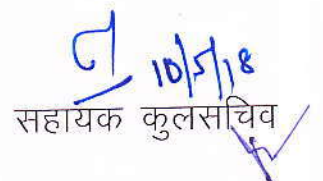 10/5/18
सहायक कुलसचिव